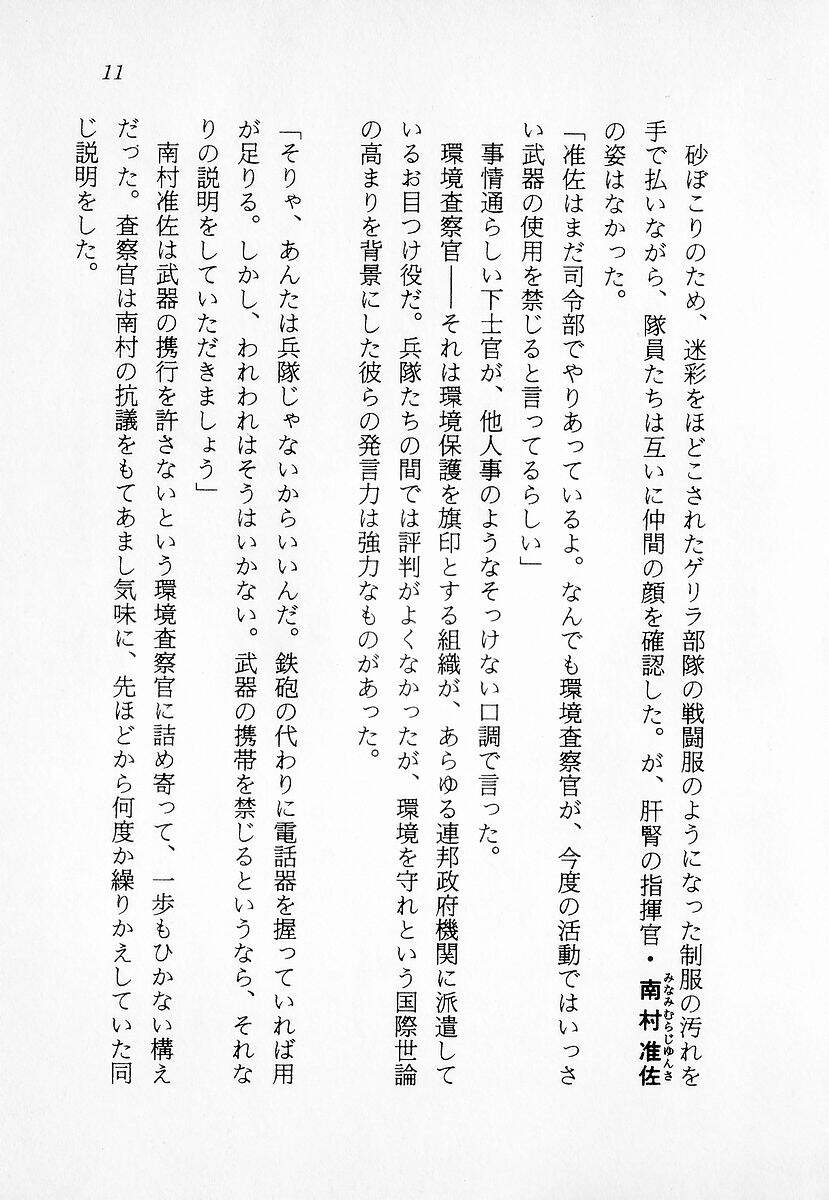 11
砂ぼこりのため、迷彩をほどこされたゲリラ部隊の戦闘服のようになった制服の汚れを
手で払いながら、隊員たちは互いに仲間の顔を確認した。が、肝腎の指揮官・南村准佐
みなみむらじゆんさ
の姿はなかった。
「准佐はまだ司令部でやりあっているよ。なんでも環境査察官が、今度の活動ではいっさ
い武器の使用を禁じると言ってるらしい」
事情通らしい下士官が、他人事のようなそっけない口調で言った。
環境査察官――それは環境保護を旗印とする組織が、あらゆる連邦政府機関に派遣して
いるお目つけ役だ。兵隊たちの間では評判がよくなかったが、環境を守れという国際世論
の高まりを背景にした彼らの発言力は強力なものがあった。
「そりゃ、あんたは兵隊じゃないからいいんだ。鉄砲の代わりに電話器を握っていれば用
が足りる。しかし、われわれはそうはいかない。武器の携帯を禁じるというなら、それな
りの説明をしていただきましょう」
南村准佐は武器の携行を許さないという環境査察官に詰め寄って、一歩もひかない構え
だった。査察官は南村の抗議をもてあまし気味に、先ほどから何度か繰りかえしていた同
じ説明をした。